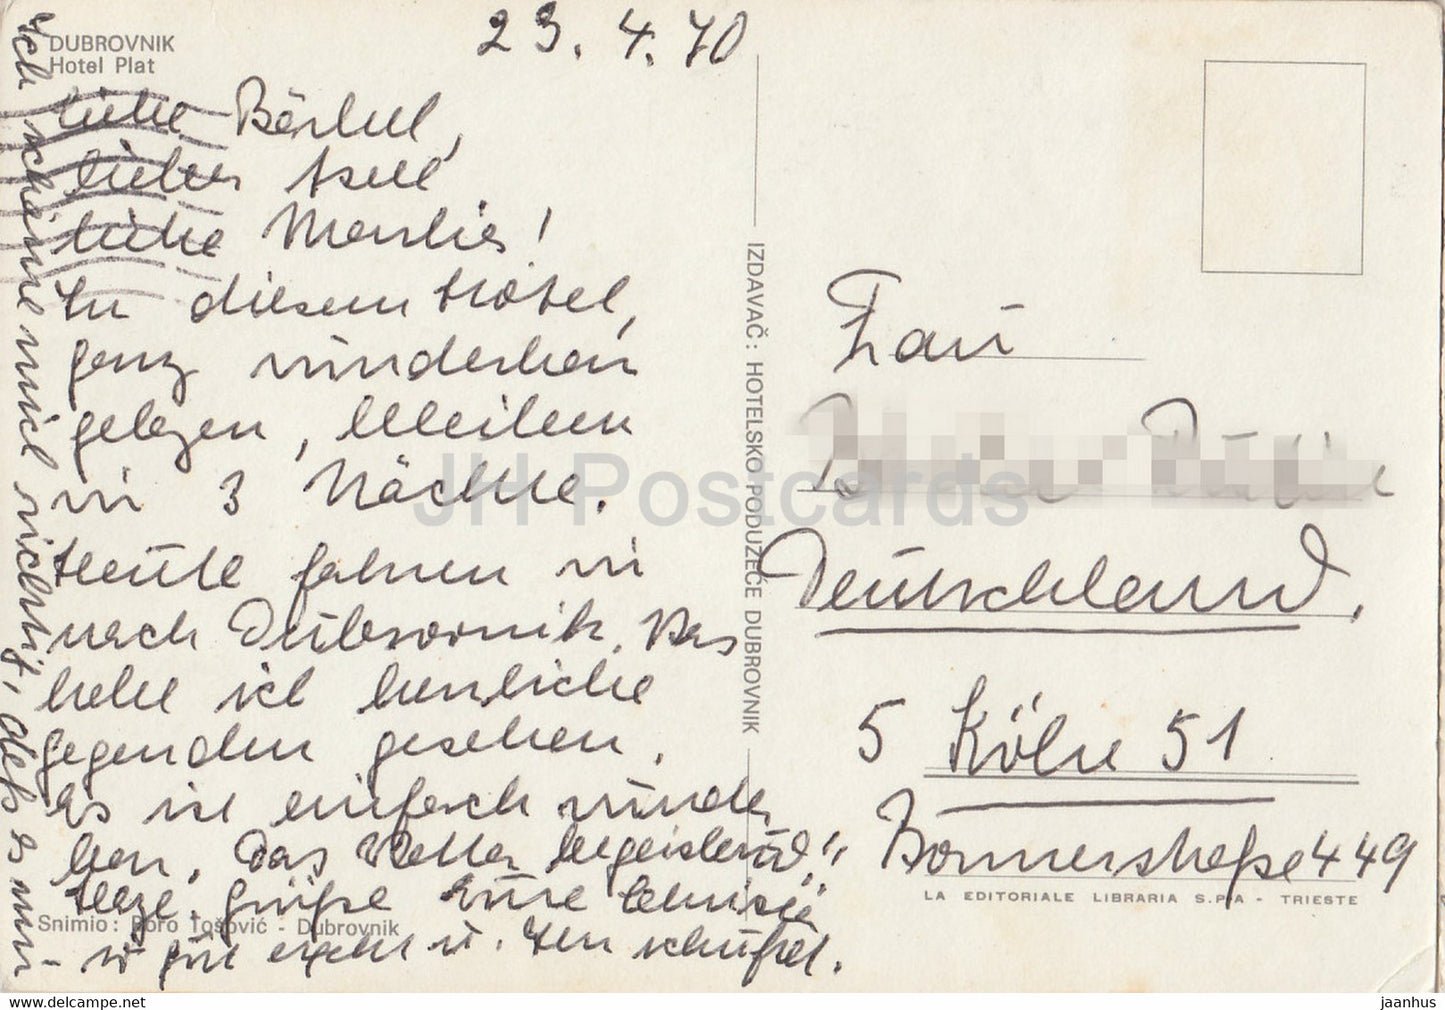 DUBROVNIK
Hotel Plat
23. 4. 70
Liebe Bärbel,
liebes
liebe Marlies!
In diesem Hotel,
ganz wunderbar
gelegen, bleiben
wir 3 Nächte.
Heute fahren wir
nach Dubrovnik. Was
habe ich herrliche
Gegenden gesehen.
Es ist einfach wunder
bar. Das Wetter begeisternd!!
Herz. Grüße Eure
Ich schäme mich richtig, daß es mir
so gut geht u. Ihr schuftet.
Snimio: Boro Tošović - Dubrovnik
IZDAVAČ: HOTELSKO PODUZEĆE DUBROVNIK
Frau
Deutschland.
5 Köln 51
Bonnerstraße 449
LA EDITORIALE LIBRARIA S.P.A - TRIESTE
JH Postcards
www.delcampe.net
jaanhus